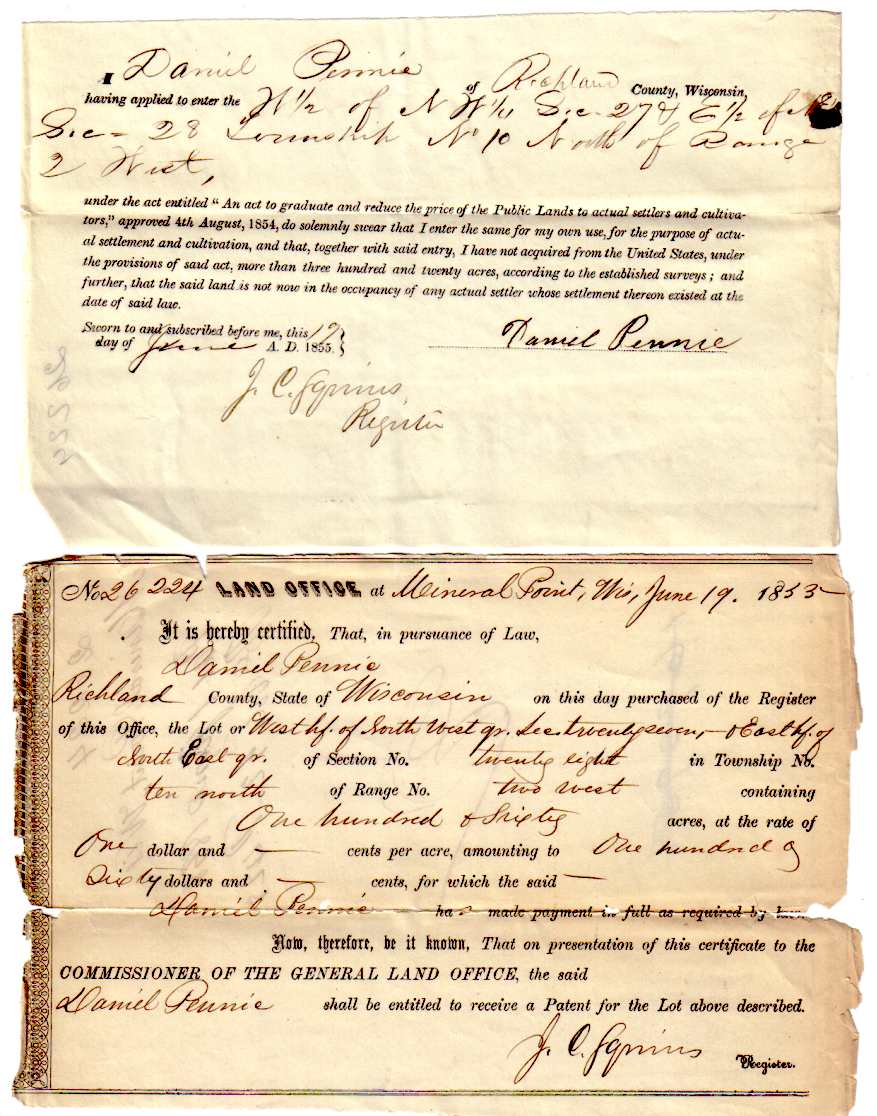 I Daniel Pennie of Richland County, Wisconsin,
having applied to enter the W 1/2 of N W 1/4 Sec. 27 & E 1/2 of NE
Sec - 28 Township No 10 North of Range
2 West,
under the act entitled "An act to graduate and reduce the price of the Public Lands to actual settlers and cultiva-
tors," approved 4th August, 1854, do solemnly swear that I enter the same for my own use, for the purpose of actu-
al settlement and cultivation, and that, together with said entry, I have not acquired from the United States, under
the provisions of said act, more than three hundred and twenty acres, according to the established surveys; and
further, that the said land is not now in the occupancy of any actual settler whose settlement thereon existed at the
date of said law.
Sworn to and subscribed before me, this 19
day of June A. D. 1855.
Daniel Pennie
J. C. Squires
Register
No 26 224 LAND OFFICE at Mineral Point, Wis, June 19. 1855
It is hereby certified, That, in pursuance of Law,
Daniel Pennie
Richland County, State of Wisconsin on this day purchased of the Register
of this Office, the Lot or West hf. of North West qr. Sec. twenty seven, - & East hf. of
North East qr. of Section No. twenty eight in Township No.
ten north of Range No. two west containing
One hundred & Sixty acres, at the rate of
One dollar and — cents per acre, amounting to One hundred &
Sixty dollars and — cents, for which the said —
Daniel Pennie - has made payment in full as required by law.
Now, therefore, be it known, That on presentation of this certificate to the
COMMISSIONER OF THE GENERAL LAND OFFICE, the said
Daniel Pennie shall be entitled to receive a Patent for the Lot above described.
J. C. Squires
Register.